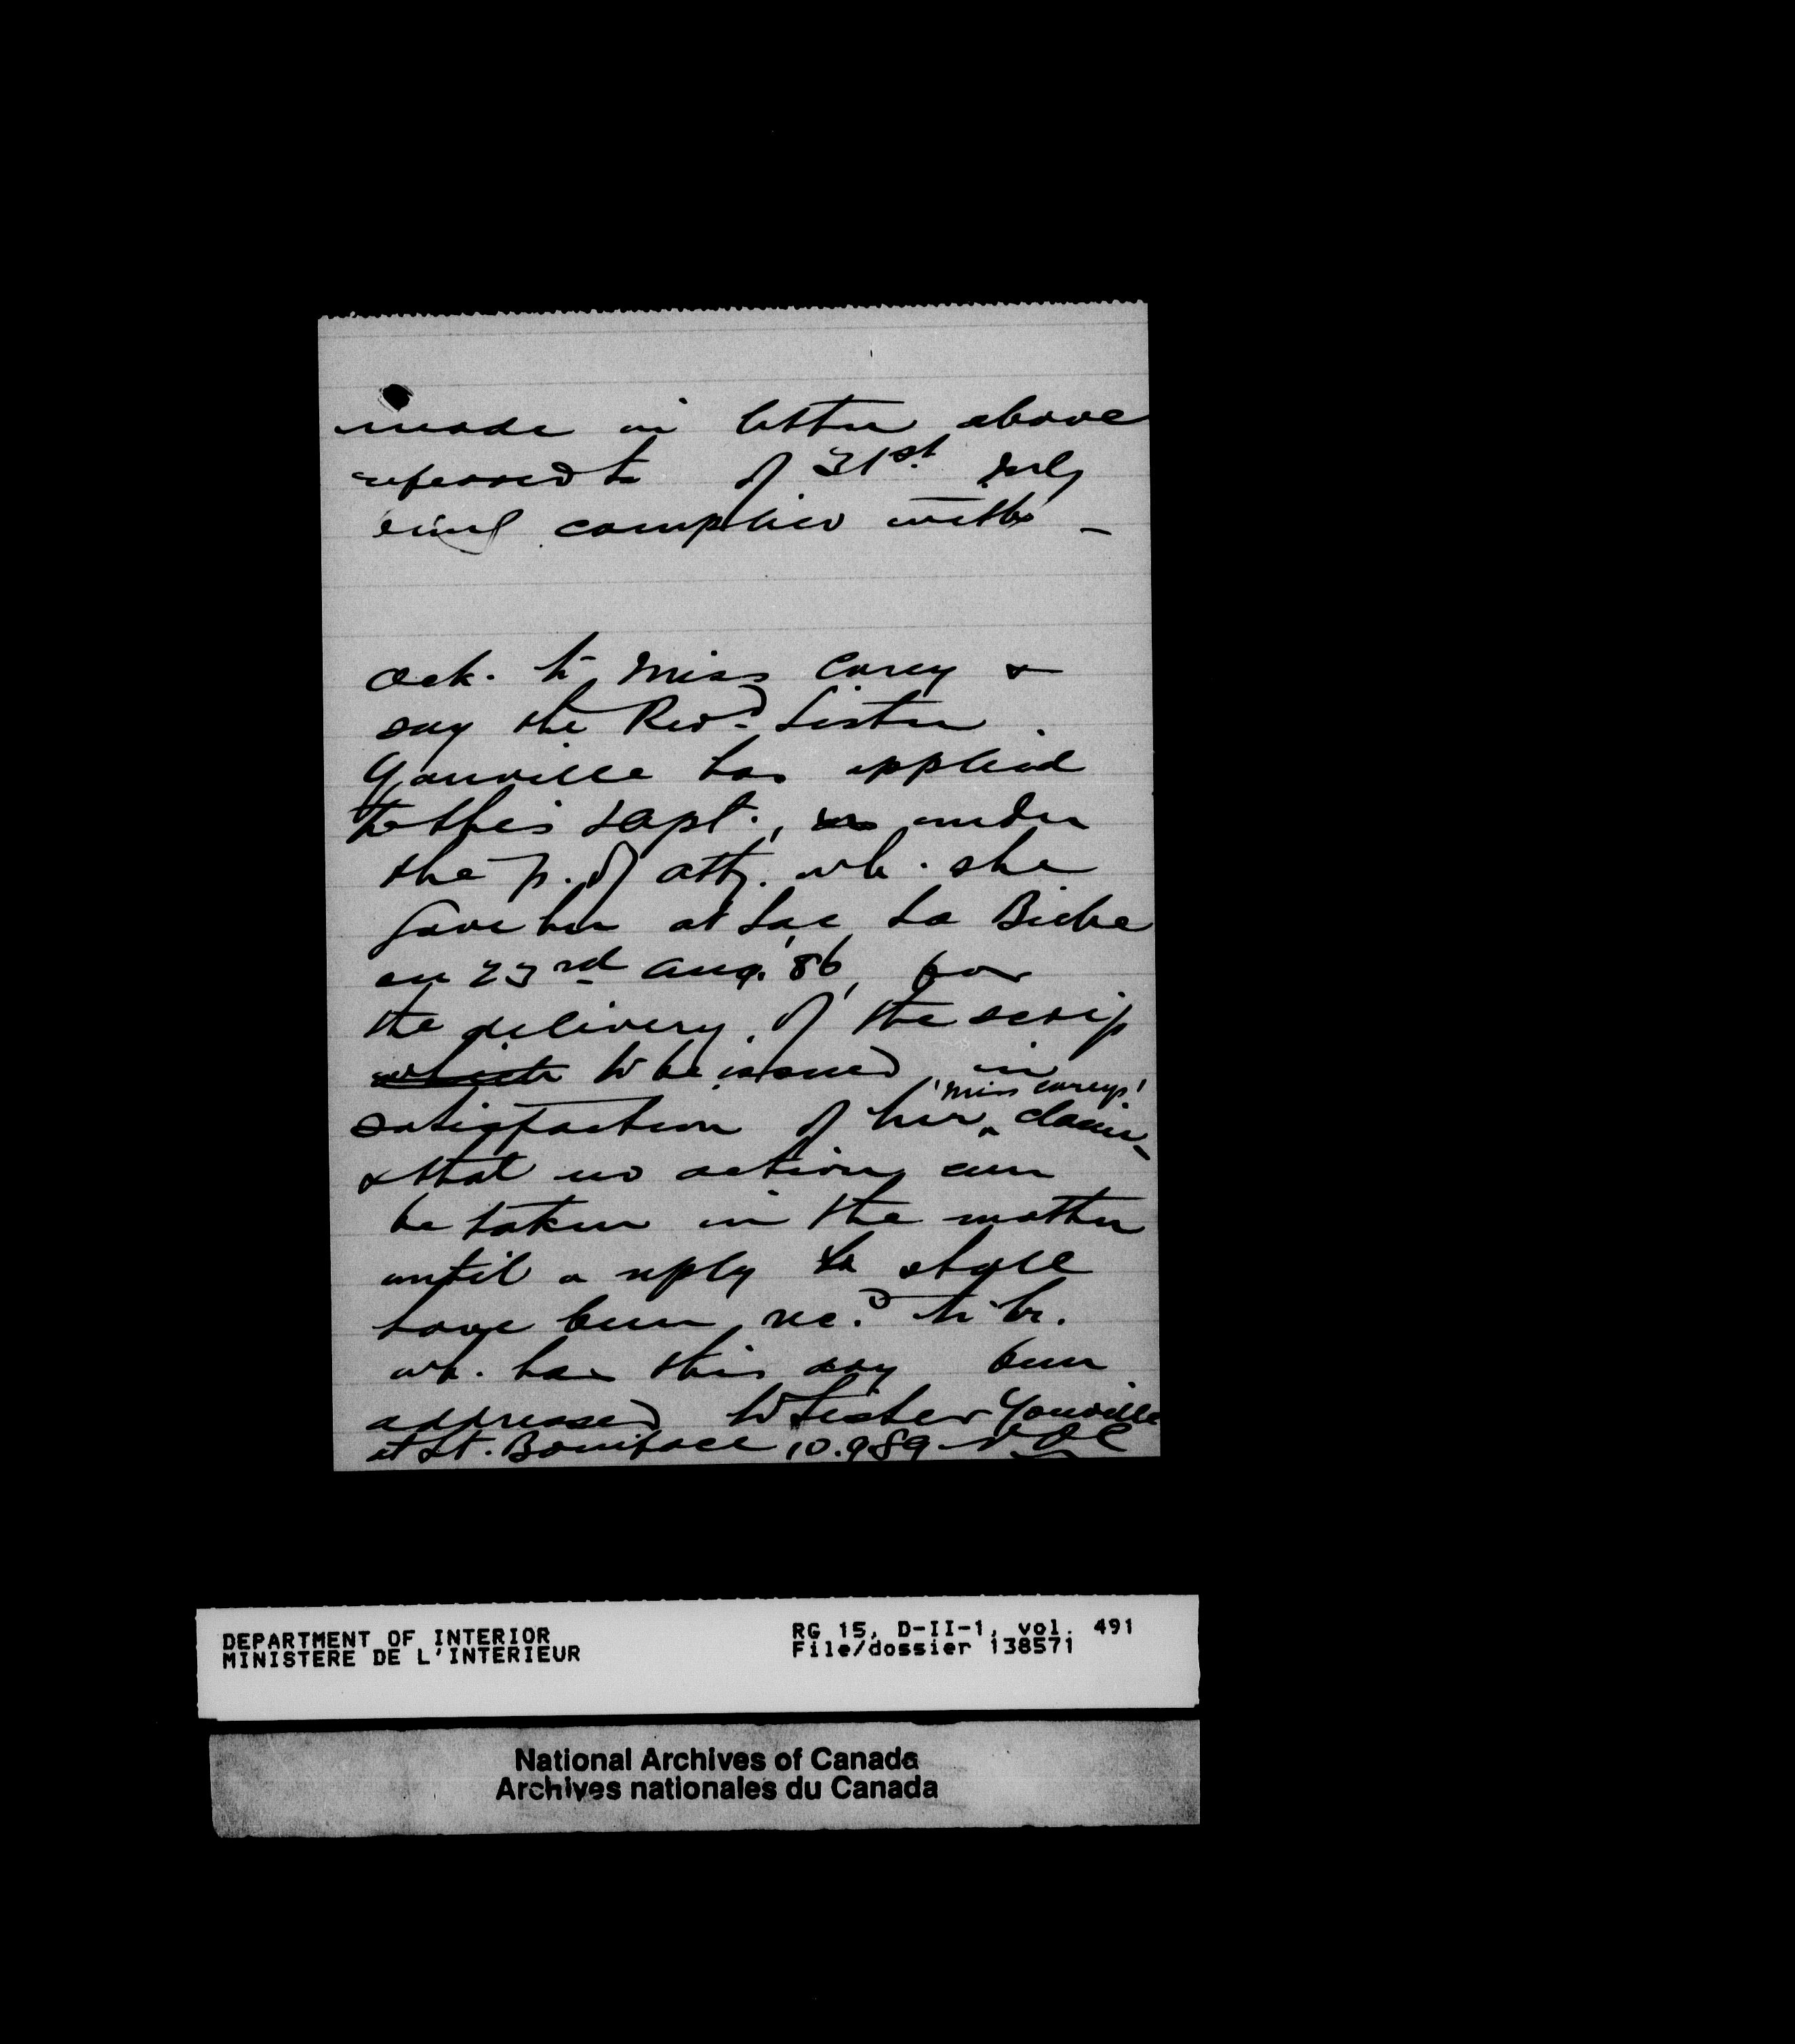 made in letter above
referred to of 31st July
being complied with -
Ack. to Miss Carey &
say the Revd. Sister
Youville has applied
to this Dept., under
the p. of atty. wh. she
gave her at Lac La Biche
on 23rd Aug. '86, for
the delivery of the scrip
which to be issued in
'Miss Carey's'
satisfaction of her claim -
& that no action can
be taken in the matter
until a reply to shall
have been recd. to lr.
wh. has this day been
addressed to Sister Youville
at St. Boniface 10.9.89
DEPARTMENT OF INTERIOR
MINISTERE DE L'INTERIEUR
RG 15, D-II-1, vol. 491
File/dossier 138571
National Archives of Canada
Archives nationales du Canada